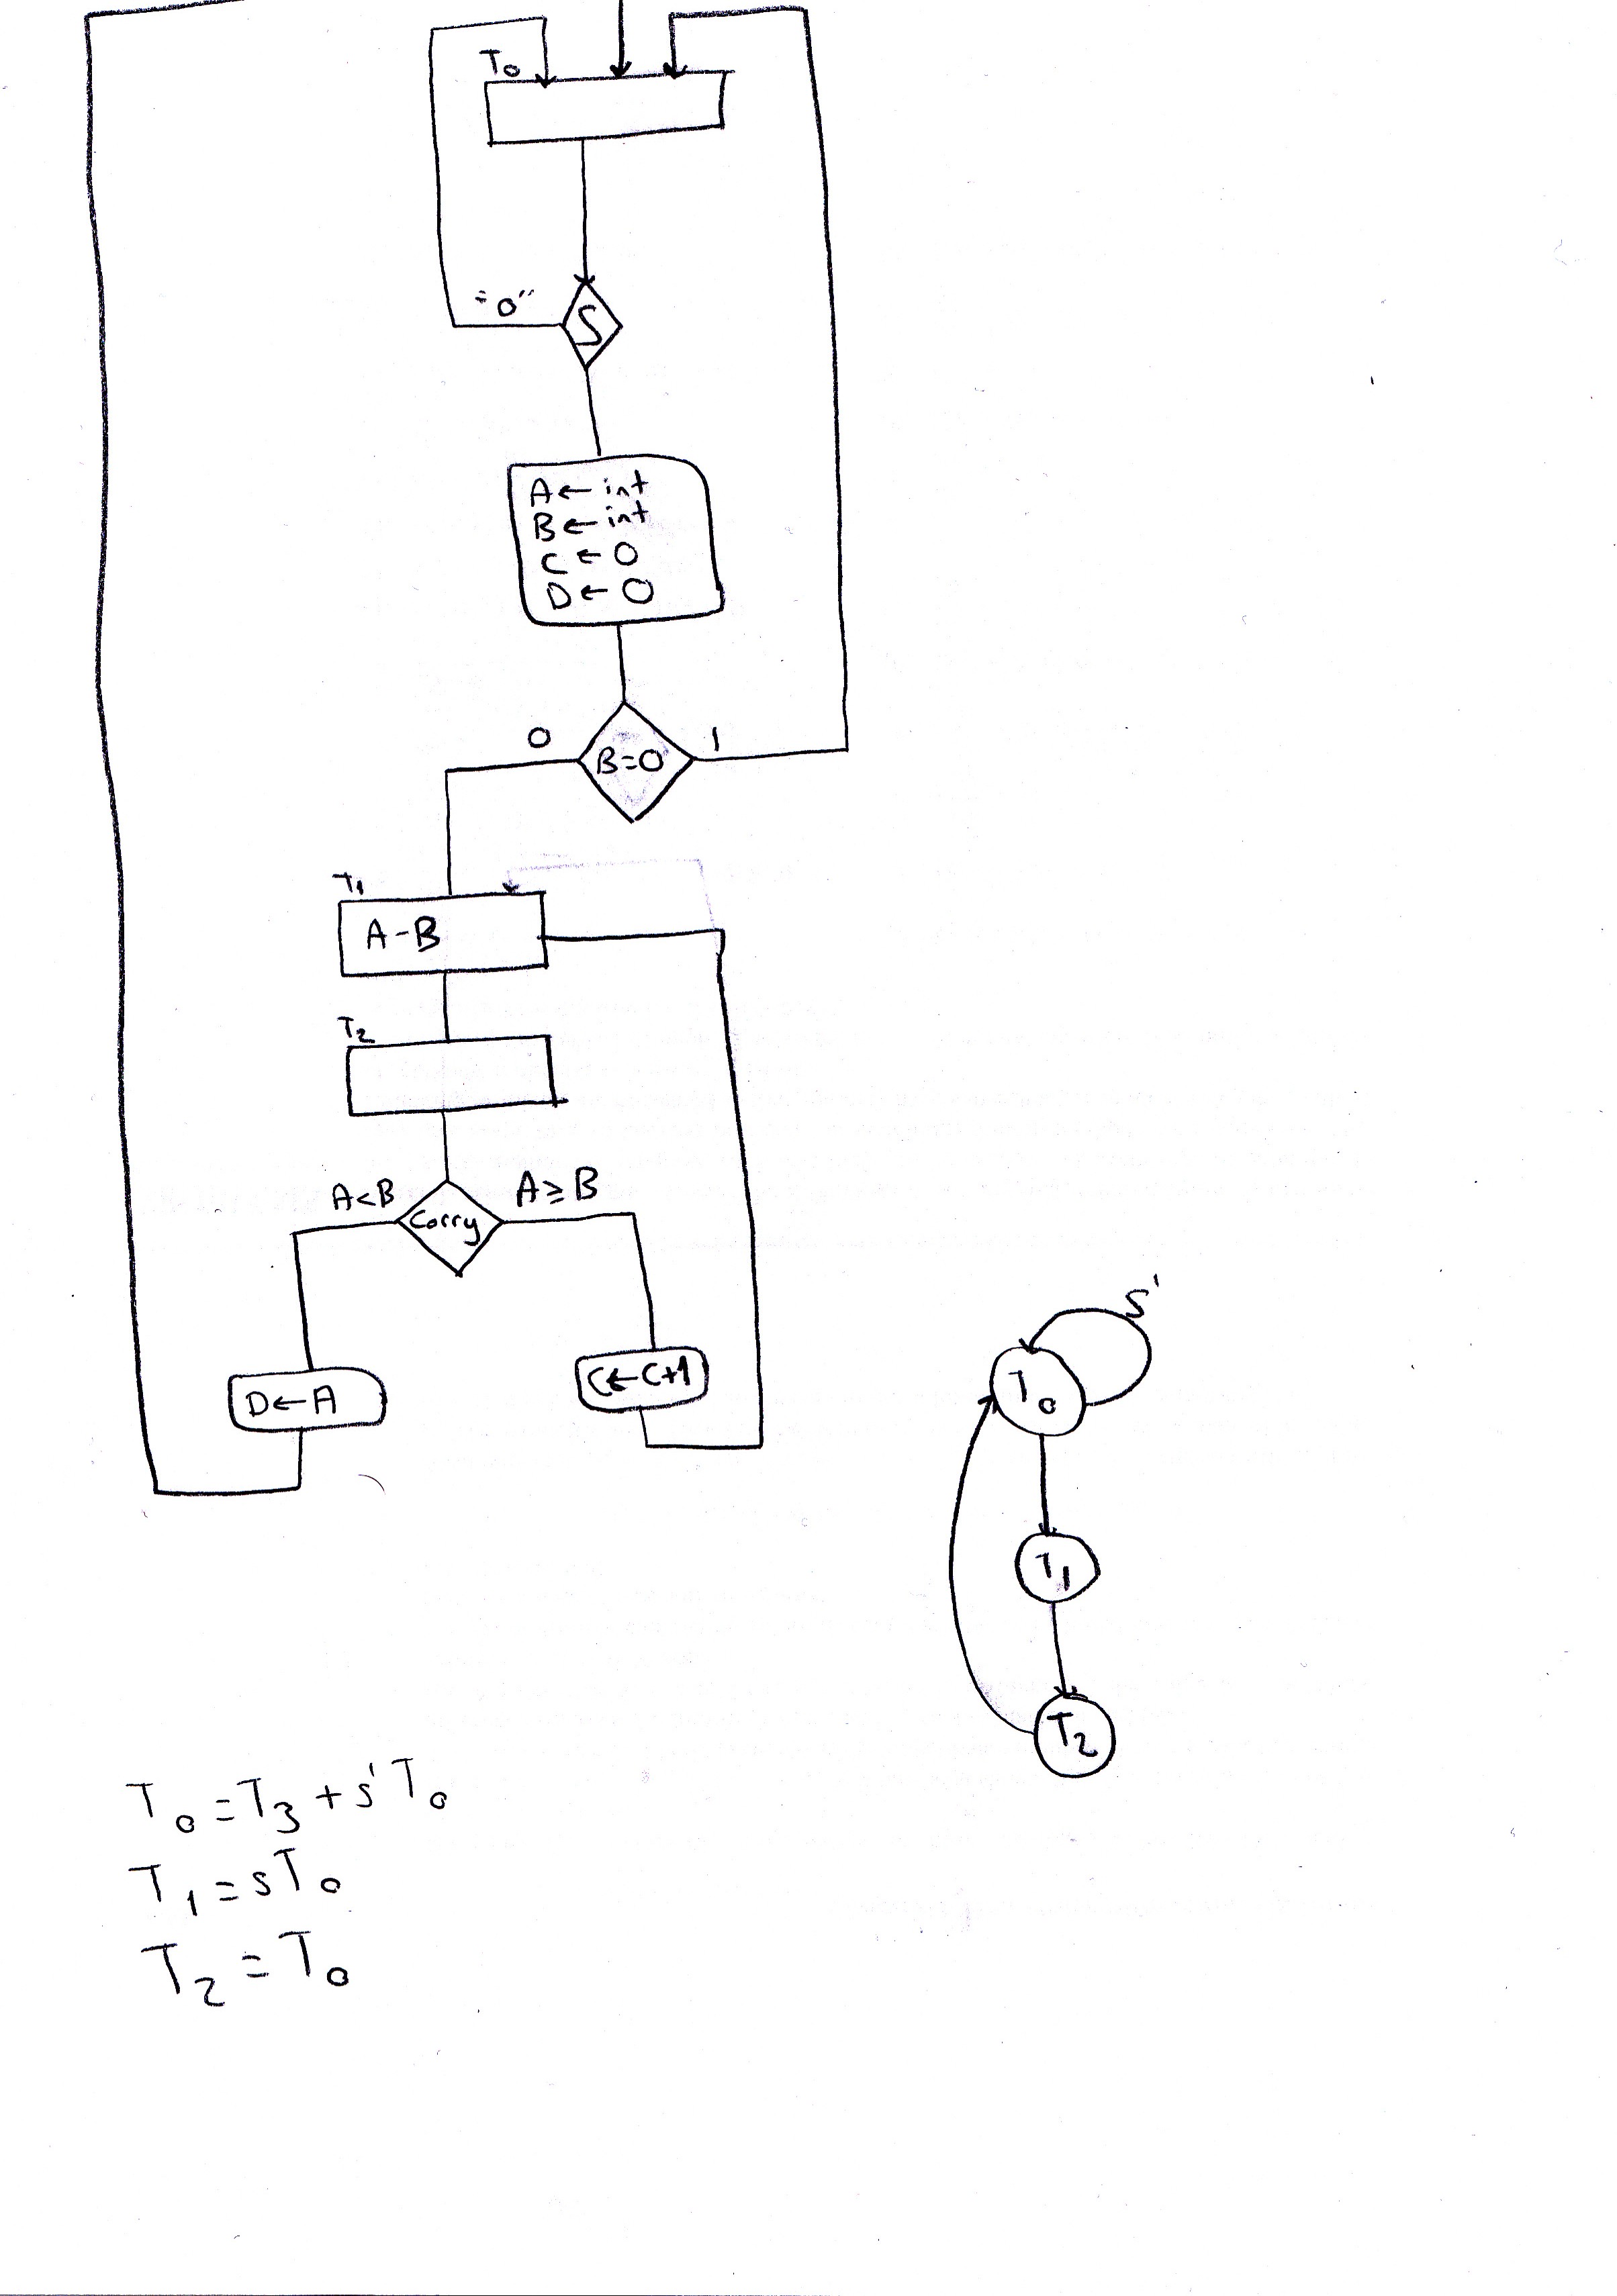 T0
"0"
S
A ← int
B ← int
C ← 0
D ← 0
0
1
B=0
T1
A-B
T2
A<B
A≥B
Carry
D←A
C←C+1
S'
T0
T1
T2
T0 = T3 + s' T0
T1 = sT0
T2 = T0